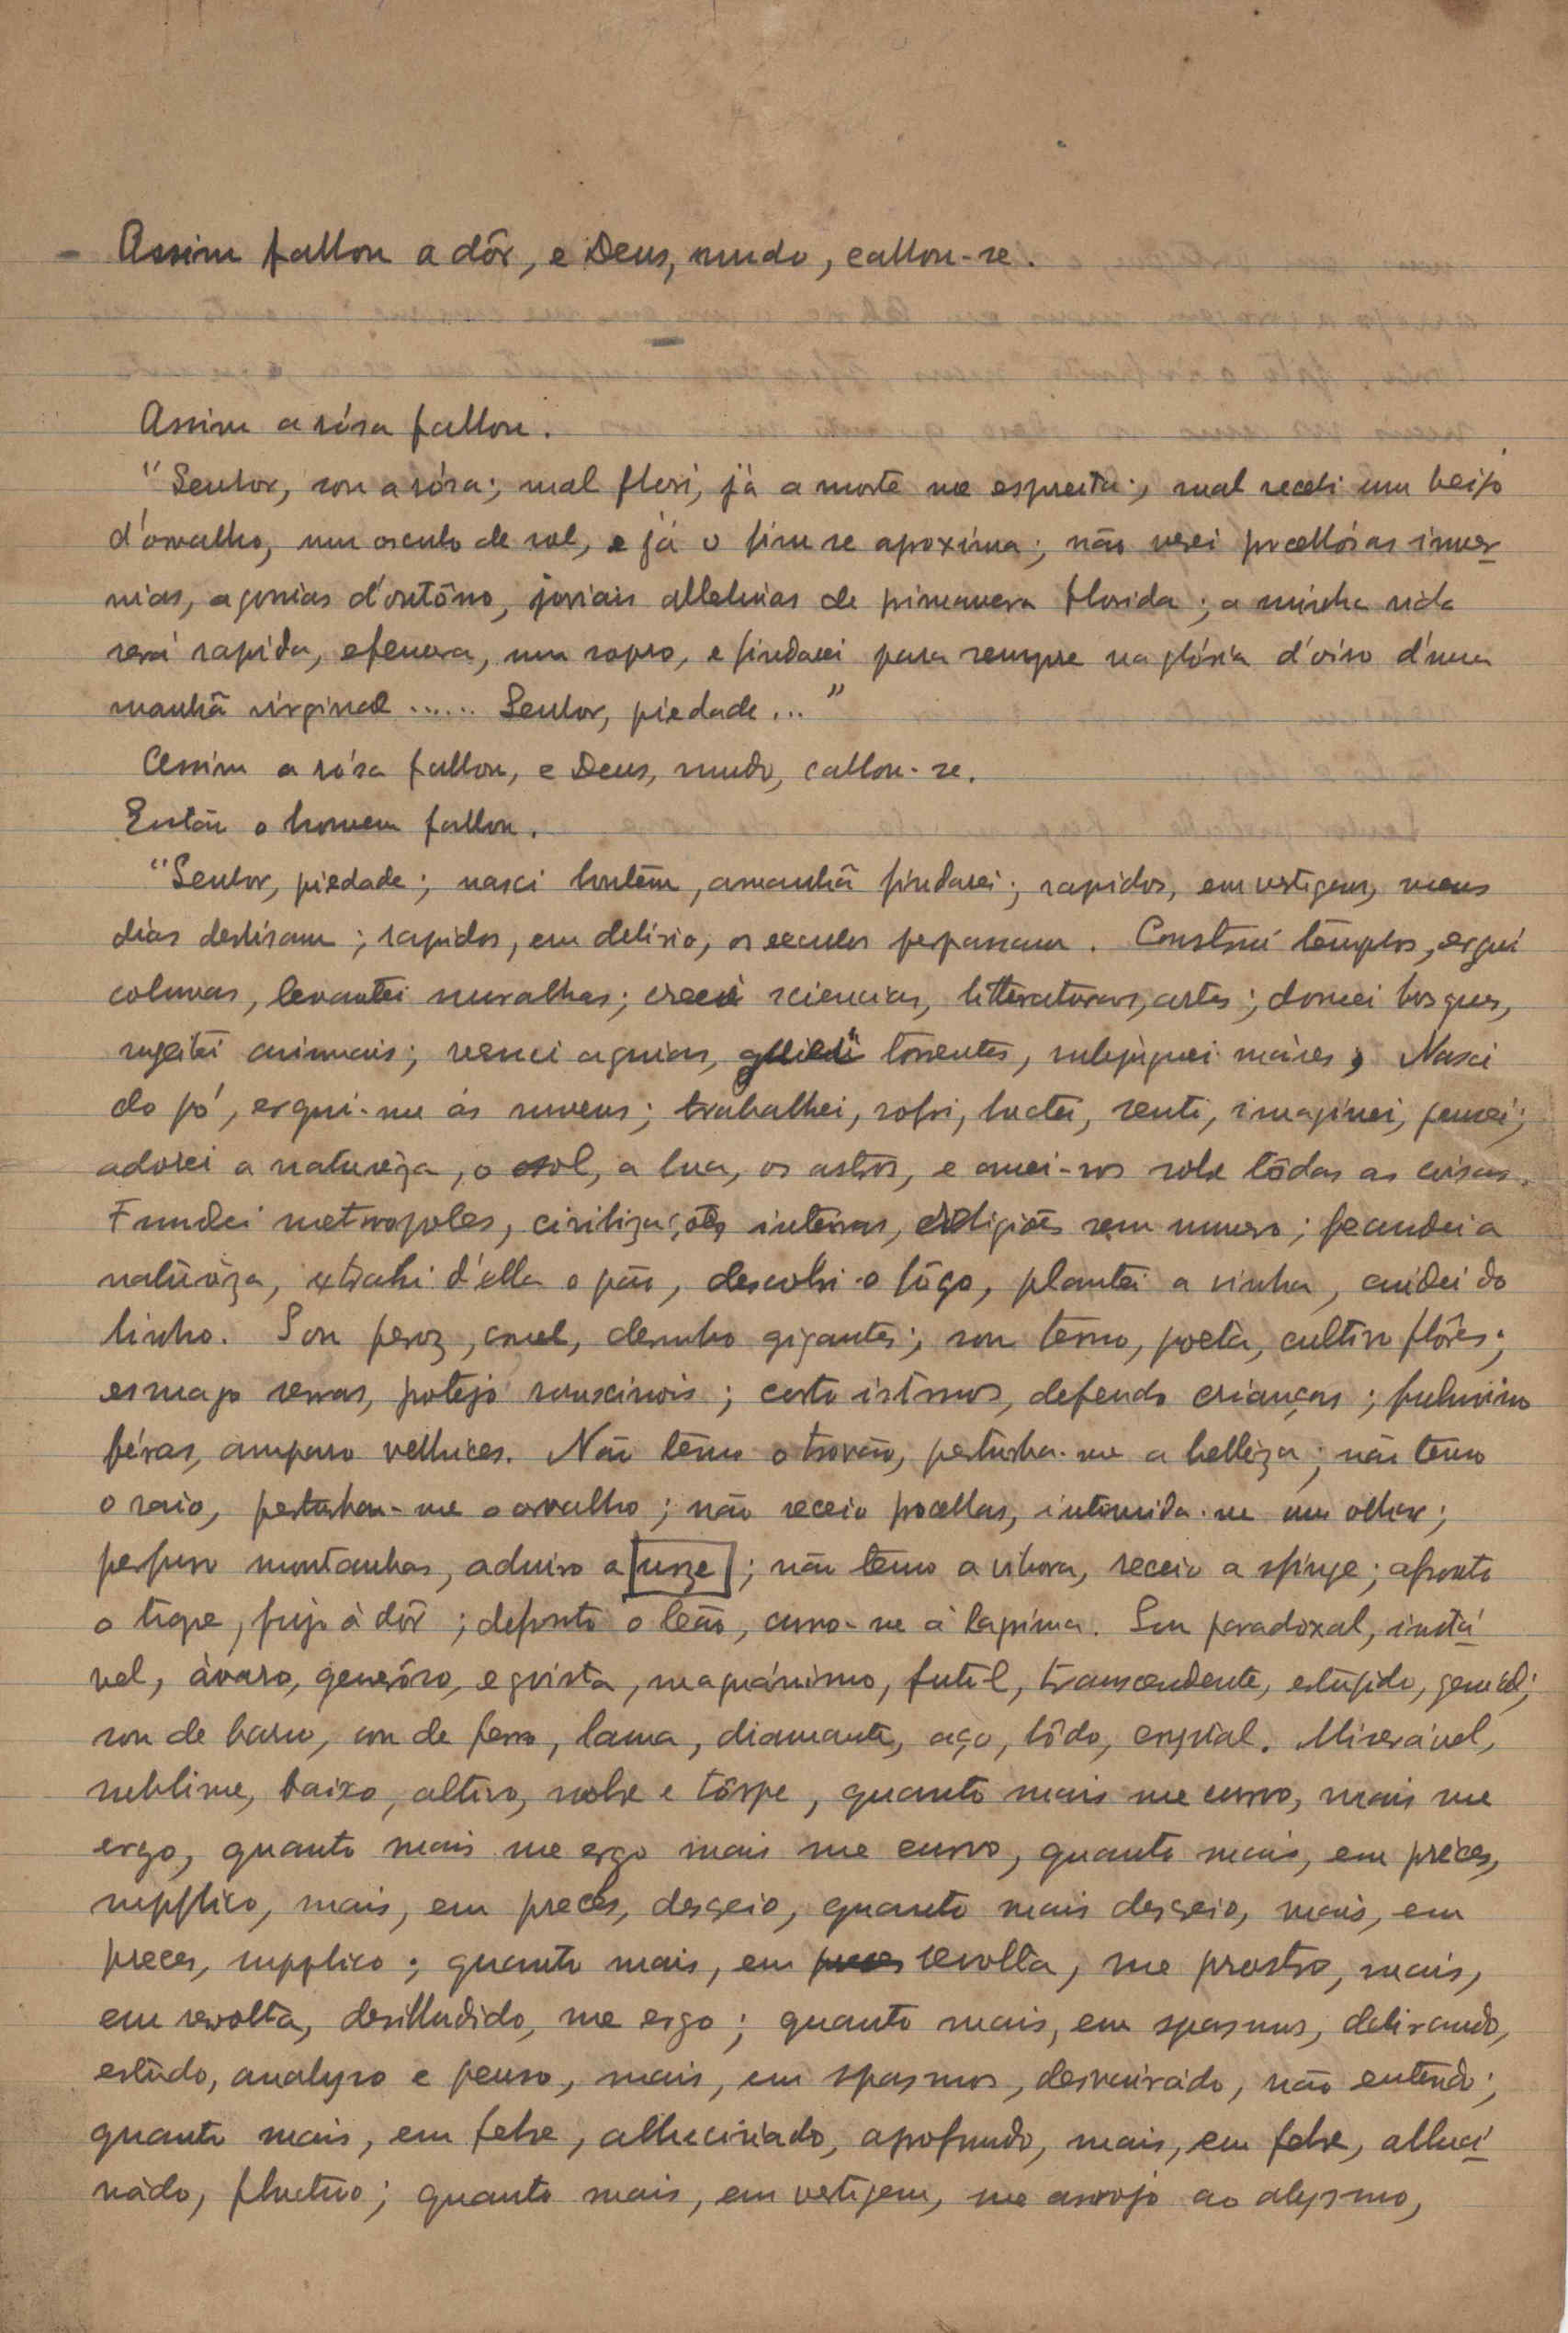 - Assim fallou a dôr, e Deus, mudo, callou-se.
Assim a rósa fallou.
"Senhor, sou a rósa; mal flori, já a morte me espreita; mal recebi um beijo
d'orvalho, um osculo de sol, e já o fim se aproxima; não verei procellósas inver-
nias, agonias d'outôno, joviais alleluias de primavera florida; a minha vida
será rapida, efemera, um sopro, e findarei para sempre na glória d'oiro d'uma
manhã virginal ...... Senhor, piedade..."
Assim a rósa fallou, e Deus, mudo, callou-se.
Então o homem fallou.
"Senhor, piedade; nasci hontem, amanhã findarei; rapidos, em vertigem, meus
dias deslisam; rapidos, em delirio, os seculos perpassam. Construi templos, ergui
columas, levantei muralhas; creei sciencias, litteraturas, artes; domei bosques,
sugeitei animais; venci aguias, torrentes, subjuguei máres, Nasci
do pó, ergui-me ás nuvens; trabalhei, sofri, luctei, senti, imaginei, pensei;
adorei a naturêza, o sol, a lua, os astros, e amei-vos sobre tôdas as coisas.
Fundei metropoles, civilizações inteiras, religiões sem numero; fecundei a
naturêza, extrahi d'ella o pão, descobri o fôgo, plantei a vinha, cuidei do
linho. Sou feroz, cruel, derrubo gigantes; sou terno, poeta, cultivo flôres;
esmago serras, protejo rouscinois; corto istmos, defendo crianças; fulmino
féras, amparo velhices. Não temo o trovão, perturba-me a bellêza; não temo
o raio, perturba-me o orvalho; não receio procellas, intimida-me um olhar;
perfuro montanhas, admiro a [urze]; não temo a vibora, receio a sfinge; afronto
o tigre, fujo á dôr; defronto o leão, curvo-me á lagrima. Sou paradoxal, instá-
vel, ávaro, generôso, egoista, magnánimo, futil, transcendente, estupido, genial;
sou de barro, sou de ferro, lama, diamante, aço, lôdo, crystal. Miserável,
sublime, baixo, altivo, nobre e tôrpe, quanto mais me curvo, mais me
ergo, quanto mais me ergo mais me curvo, quanto mais, em préces,
supplico, mais, em preces, descreio, quanto mais descreio, mais, em
preces, supplico; quanto mais, em revolta, me prostro, mais,
em revolta, desilludido, me ergo; quanto mais, em spasmos, delirando,
estudo, analyso e penso, mais, em spasmos, desvairado, não entendo;
quanto mais, em febre, allucinado, aprofundo, mais, em febre, alluci-
nado, fluctuo; quanto mais, em vertigem, me arrojo ao abysmo,